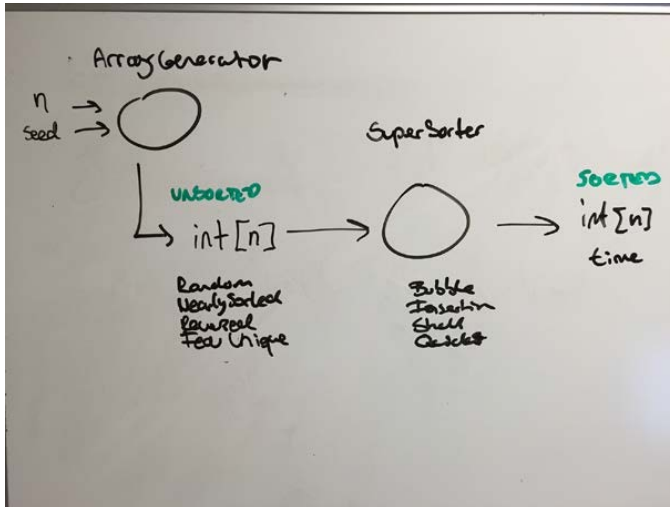 ArrayGenerator
n
seed
UNSORTED
int[n]
Random
NearlySorted
Reversed
Few Unique
SuperSorter
Bubble
Insertion
Shell
SORTED
int[n]
time